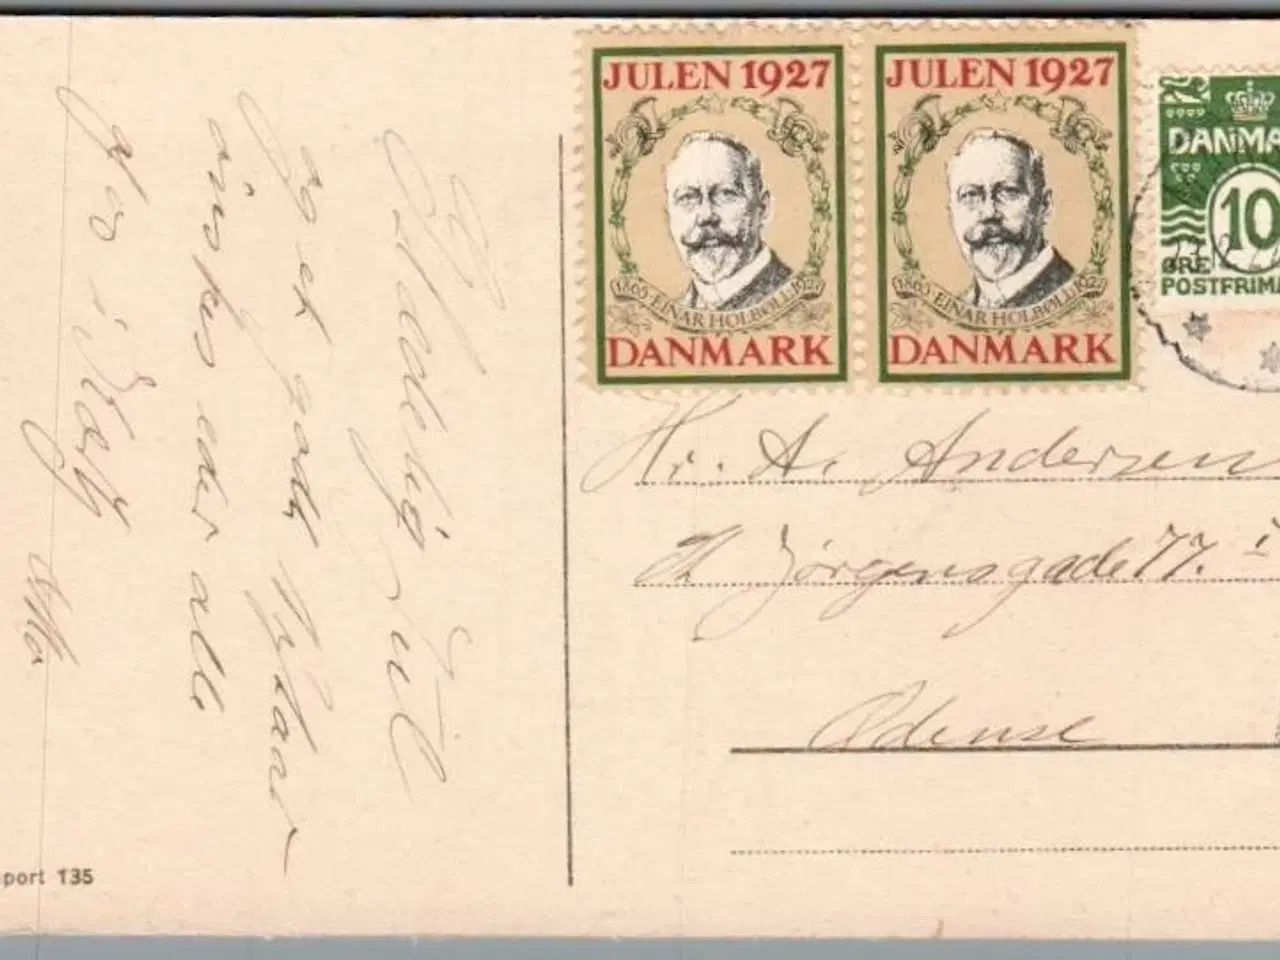 JULEN 1927
1865·EINAR HOLBØLL·1927
DANMARK
JULEN 1927
1865·EINAR HOLBØLL·1927
DANMARK
DANMA
10
ØRE
POSTFRIMÆ
Glædelig Jul
og et godt Nytaar
ønskes eder alle
Hr. A. Andersen
Jørgensgade 77.
Odense
port 135